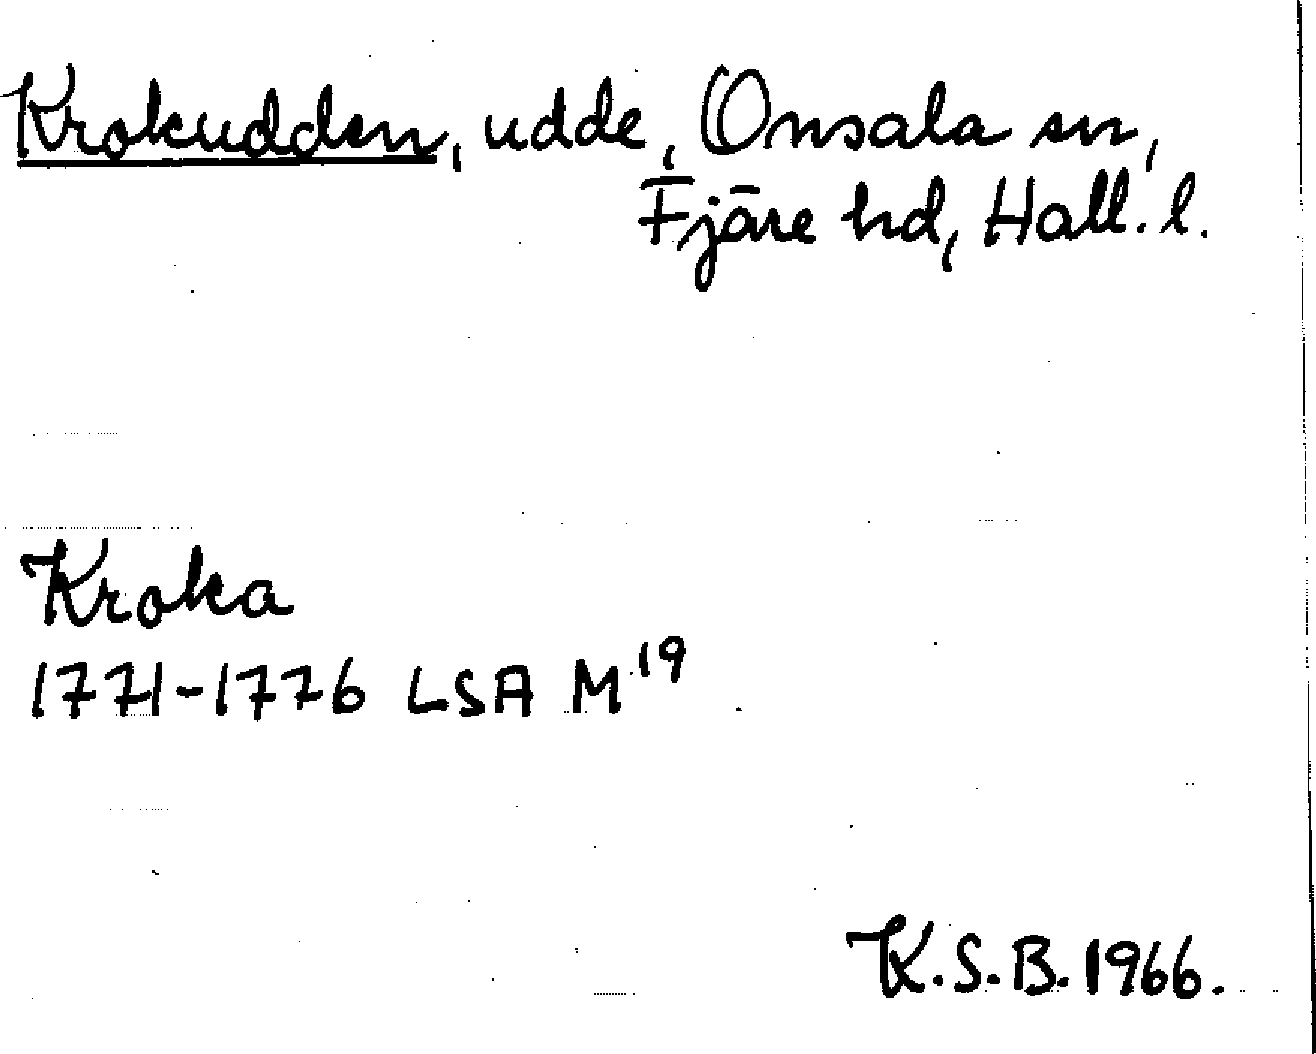 Krokudden, udde, Onsala sn,
Fjäre hd, Hall. l.
Kroka
1771-1776 LSA M 19
K.S.B. 1966.